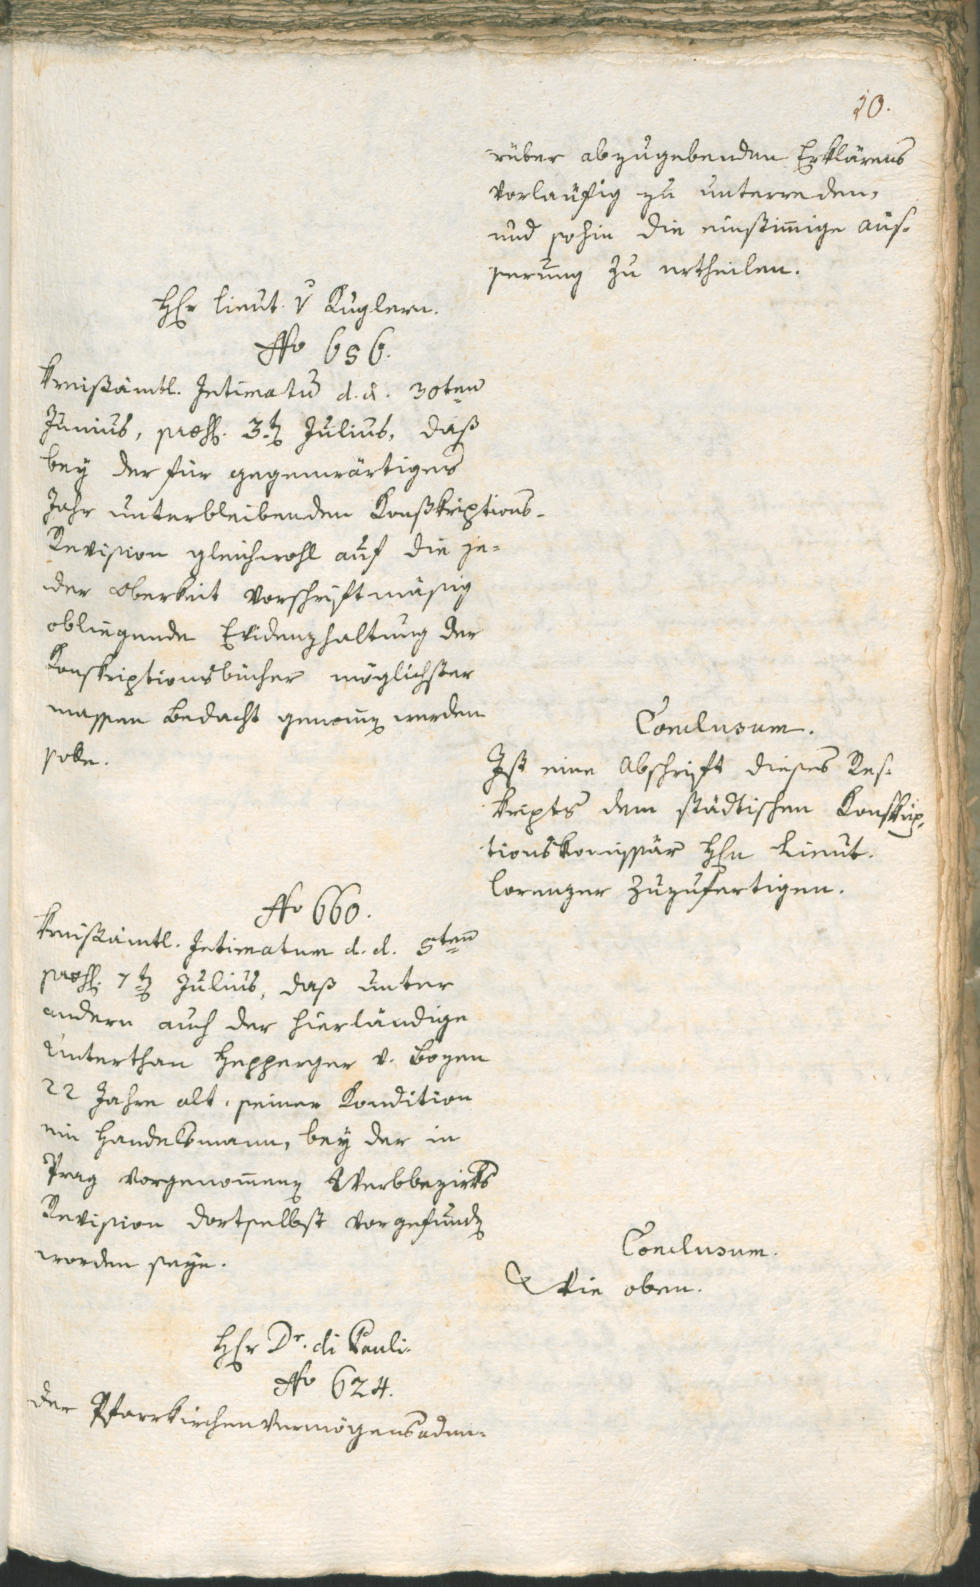 20.
rüber abzugebenden Erklärens
vorläufig zu unterreden,
und sohin die einstim̄ige Aüs„
serung zu ertheilen.
H[err] Lieut. v Kuglern.
No 656.
Kreisämtl. Intimatū d. d. 30ten
Junius, præs. 3t Julius, daß
bey der für gegenwärtiges
Jahr unterbleibenden Konskriptions-
Revision gleichwohl auf die je-
der Oberkeit vorschriftmäsig
obliegende Evidenzhaltung der
Konskriptionsbücher möglichster
massen Bedacht genom̄en werden
solle.
Conclusum.
Ist eine Abschrift dieses Res„
kripts dem städtischen Konskrip„
tionskom̄issär H[err]n Lieut.
Lorenzer zuzufertigen.
No 660.
Kreisämtl. Intimatum d. d. 5ten
præs. 7t Julius, daß unter
andern auch der hierländige
Unterthan Hepperger v. Bozen
22 Jahre alt, seiner Kondition
ein Handelsmann, bey der in
Prag vorgenom̄enen Werbbezirks
Revision dortselbst vorgefunden
worden seye.
Conclusum.
Wie oben.
H[err] Dr. di Pauli.
No 624.
Der Pfarrkirchenvermögensadmi-